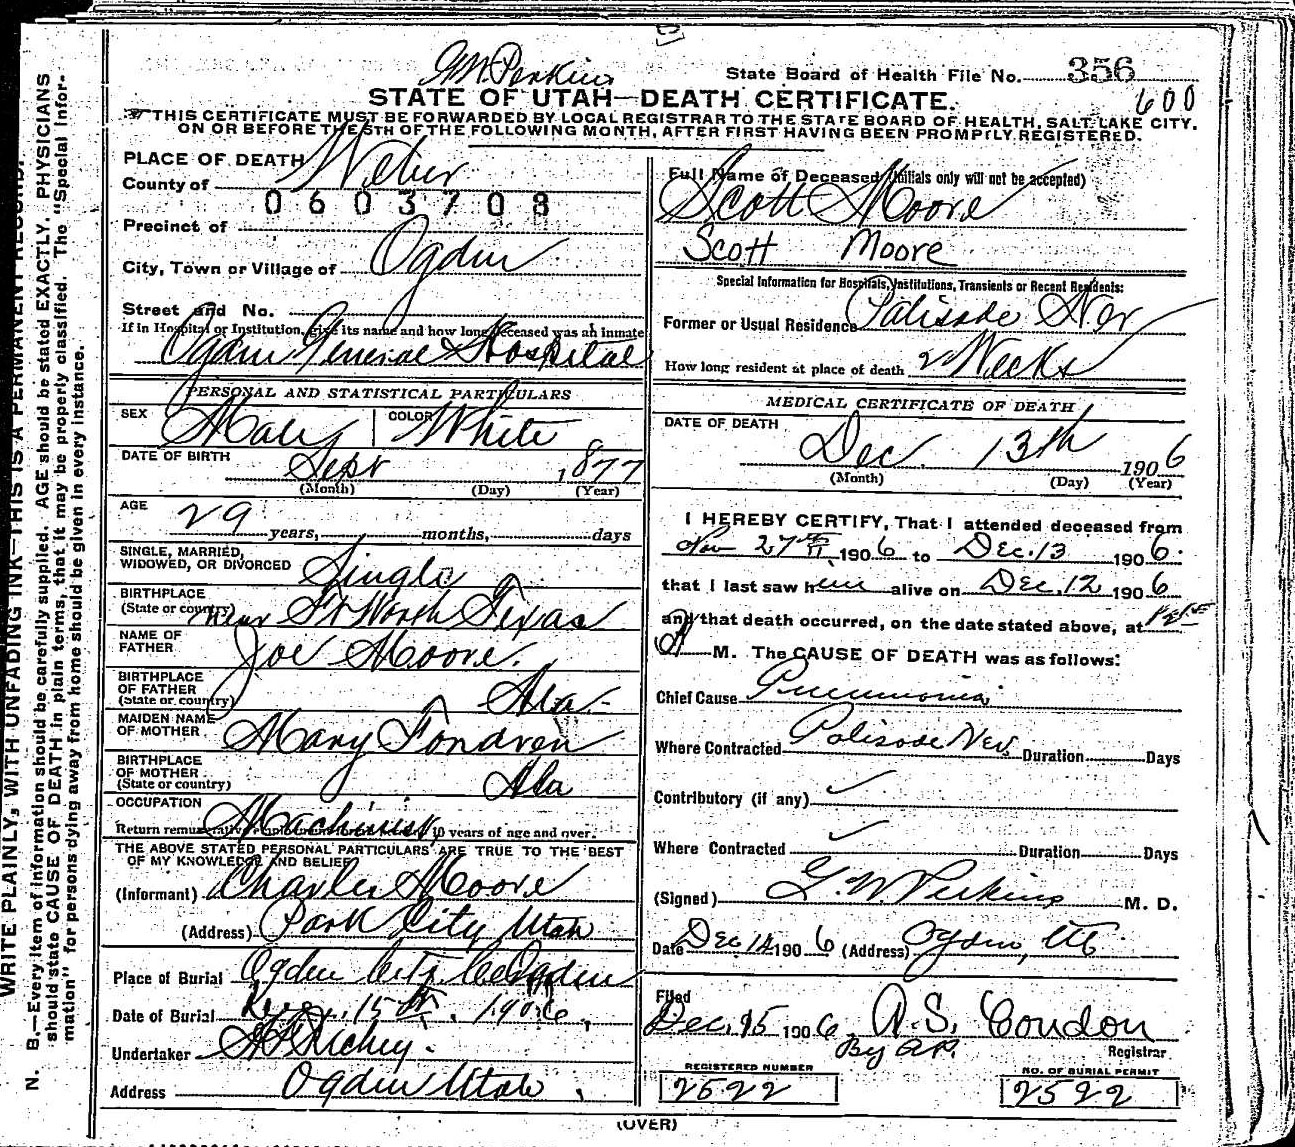 G.W. Perkins
State Board of Health File No. 356
600
STATE OF UTAH—DEATH CERTIFICATE.
THIS CERTIFICATE MUST BE FORWARDED BY LOCAL REGISTRAR TO THE STATE BOARD OF HEALTH, SALT LAKE CITY,
ON OR BEFORE THE 5TH OF THE FOLLOWING MONTH, AFTER FIRST HAVING BEEN PROMPTLY REGISTERED.
PLACE OF DEATH
County of Weber
0603708
Precinct of
City, Town or Village of Ogden
Street and No.
If in Hospital or Institution, give its name and how long deceased was an inmate
Ogden General Hospital
PERSONAL AND STATISTICAL PARTICULARS
SEX Male COLOR White
DATE OF BIRTH Sept 1877
(Month) (Day) (Year)
AGE 29 years, months, days
SINGLE, MARRIED,
WIDOWED, OR DIVORCED Single
BIRTHPLACE
(State or country) near Ft Worth Texas
NAME OF
FATHER Joe Moore.
BIRTHPLACE
OF FATHER
(State or country) Ala-
MAIDEN NAME
OF MOTHER Mary Fondren
BIRTHPLACE
OF MOTHER
(State or country) Ala
OCCUPATION Machinist
10 years of age and over.
THE ABOVE STATED PERSONAL PARTICULARS ARE TRUE TO THE BEST
OF MY KNOWLEDGE AND BELIEF
(Informant) Charles Moore
(Address) Park City Utah
Place of Burial Ogden City Ogden
Date of Burial 15th, 1906,
Undertaker Richey.
Address Ogden Utah
Full Name of Deceased (Initials only will not be accepted)
Scott Moore
Scott Moore
Special Information for Hospitals, Institutions, Transients or Recent Residents:
Former or Usual Residence Palisade Nev
How long resident at place of death 2 Weeks
MEDICAL CERTIFICATE OF DEATH
DATE OF DEATH
Dec. 13th 1906
(Month) (Day) (Year)
I HEREBY CERTIFY, That I attended deceased from
Nov 27th 1906 to Dec. 13 1906.
that I last saw him alive on Dec. 12 1906
and that death occurred, on the date stated above, at
A M. The CAUSE OF DEATH was as follows:
Chief Cause Pneumonia
Where Contracted Palisade Nev. Duration Days
Contributory (if any) ✓
Where Contracted ✓ Duration Days
(Signed) G. W. Perkins M. D.
Date Dec 14 1906 (Address) Ogden, Ut
Filed
Dec. 15 1906. A. S. Condon
By A.P. Registrar
REGISTERED NUMBER
2522
NO. OF BURIAL PERMIT
2522
(OVER)
WRITE PLAINLY, WITH UNFADING INK—THIS IS A PERMANENT RECORD.
N. B.—Every item of information should be carefully supplied. AGE should be stated EXACTLY. PHYSICIANS
should state CAUSE OF DEATH in plain terms, that it may be properly classified. The "Special Infor-
mation" for persons dying away from home should be given in every instance.